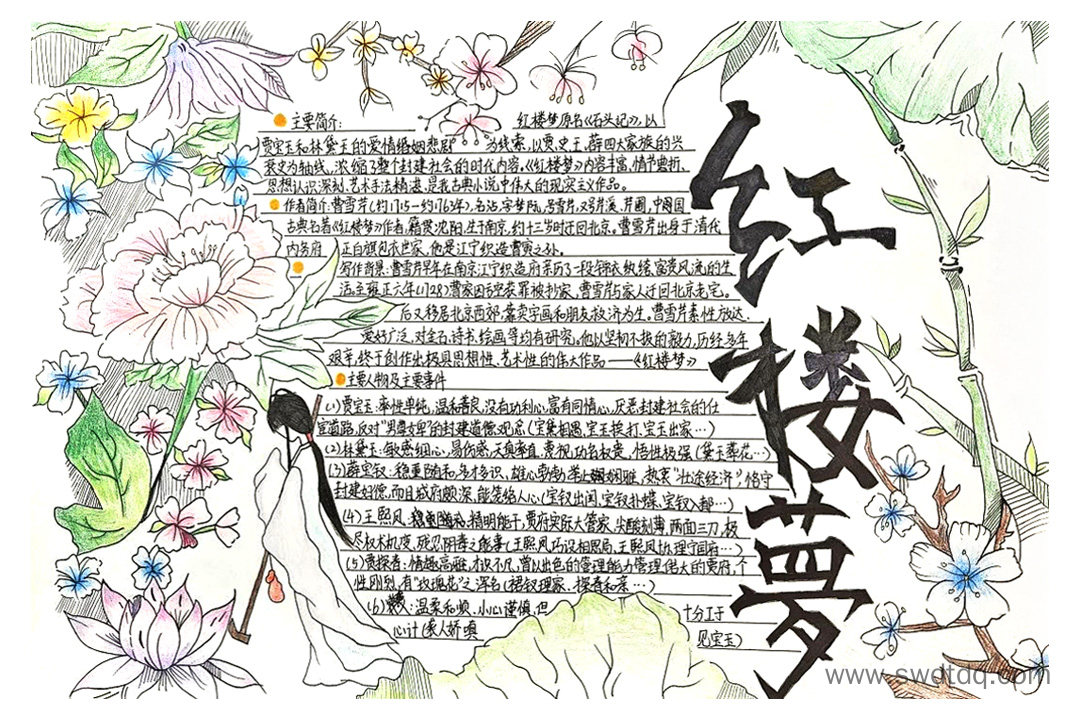 红楼夢
主要简介: 红楼梦原名《石头记》,以
贾宝玉和林黛玉的爱情婚姻悲剧 为线索,以贾,史,王,薛四大家族的兴
衰史为轴线,浓缩了整个封建社会的时代内容。《红楼梦》内容丰富,情节曲折,
思想认识深刻,艺术手法精湛,是我古典小说中伟大的现实主义作品。
作者简介:曹雪芹(约1715-约1763年),名沾,字梦阮,号雪芹,又号芹溪,芹圃,中国
古典名著《红楼梦》作者,籍贯沈阳,生于南京,约十三岁时迁回北京。曹雪芹出身于清代
内务府 正白旗包衣世家,他是江宁织造曹寅之孙。
写作背景:曹雪芹早年在南京江宁织造府亲历了一段锦衣纨绔,富贵风流的生
活。至雍正六年(1728)曹家因亏空获罪被抄家,曹雪芹与家人迁回北京老宅。
后又移居北京西郊,靠卖字画和朋友救济为生,曹雪芹素性放达,
爱好广泛,对金石,诗书,绘画等均有研究。他以坚韧不拔的毅力,历经多年
艰辛,终于创作出极具思想性、艺术性的伟大作品——《红楼梦》
主要人物及主要事件
(1)贾宝玉:率性单纯,温和善良,没有功利心,富有同情心,厌恶封建社会的仕
宦道路,反对"男尊女卑"的封建道德观念(宝黛相遇,宝玉挨打,宝玉出家…)
(2)林黛玉:敏感细心,易伤感,天真率直,蔑视功名权贵,悟性极强(黛玉葬花…)
(3)薛宝钗:稳重随和,多才多识,雄心勃勃,举止娴雅,热衷"仕途经济",恪守
封建妇德,而且城府颇深,能笼络人心(宝钗出闺,宝钗扑蝶,宝钗入都…)
(4)王熙凤, 精明能干,贾府实际大管家,尖酸刻薄,两面三刀,极
尽权术机变,残忍阴毒之能事(王熙凤巧设相思局,王熙凤协理宁国府…)
(5)贾探春:情趣高雅,才识不凡,曾以出色的管理能力管理偌大的贾府,个
性刚烈,有"玫瑰花"之浑名(裙钗理家、探春和亲…)
(6) :温柔和顺,小心谨慎,但 十分工于
心计( 人娇嗔 见宝玉)
www.swdtdq.com